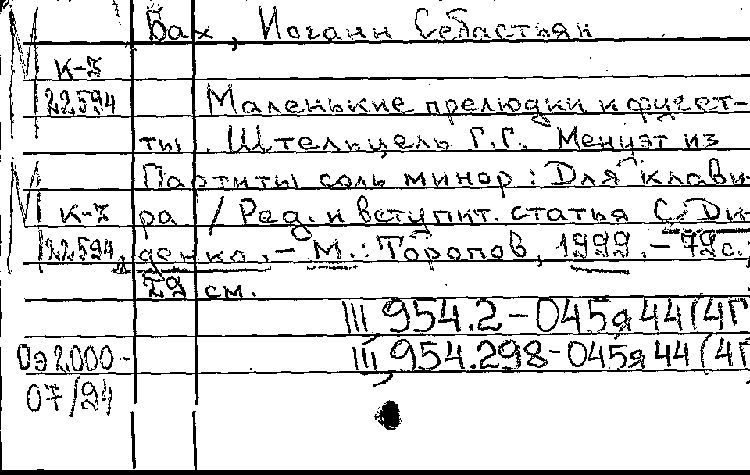 Бах, Иоганн Себастьян
М
К-3
22594
Маленькие прелюдии и фугет-
ты. Штельцель Г.Г. Менуэт из
М
Партиты соль минор: Для клави-
К-3
ра / Ред. и вступит. статья С. Ди-
22594а
денко. – М.: Торопов, 1999. – 72 с.;
29 см.
III 954.2-045я44(4Г
Оэ2000-
III, 954.298-045я44(4Г
07/24